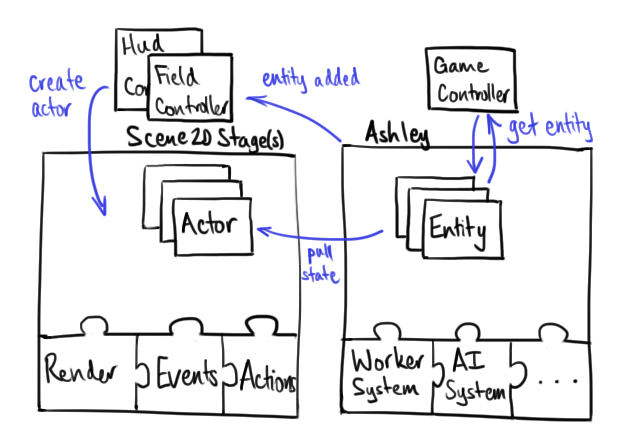 Hud
Co
Field
Controller
create
actor
entity added
Game
Controller
get entity
Scene2D Stage(s)
Ashley
Actor
Entity
pull
state
Render
Events
Actions
Worker
System
AI
System
...